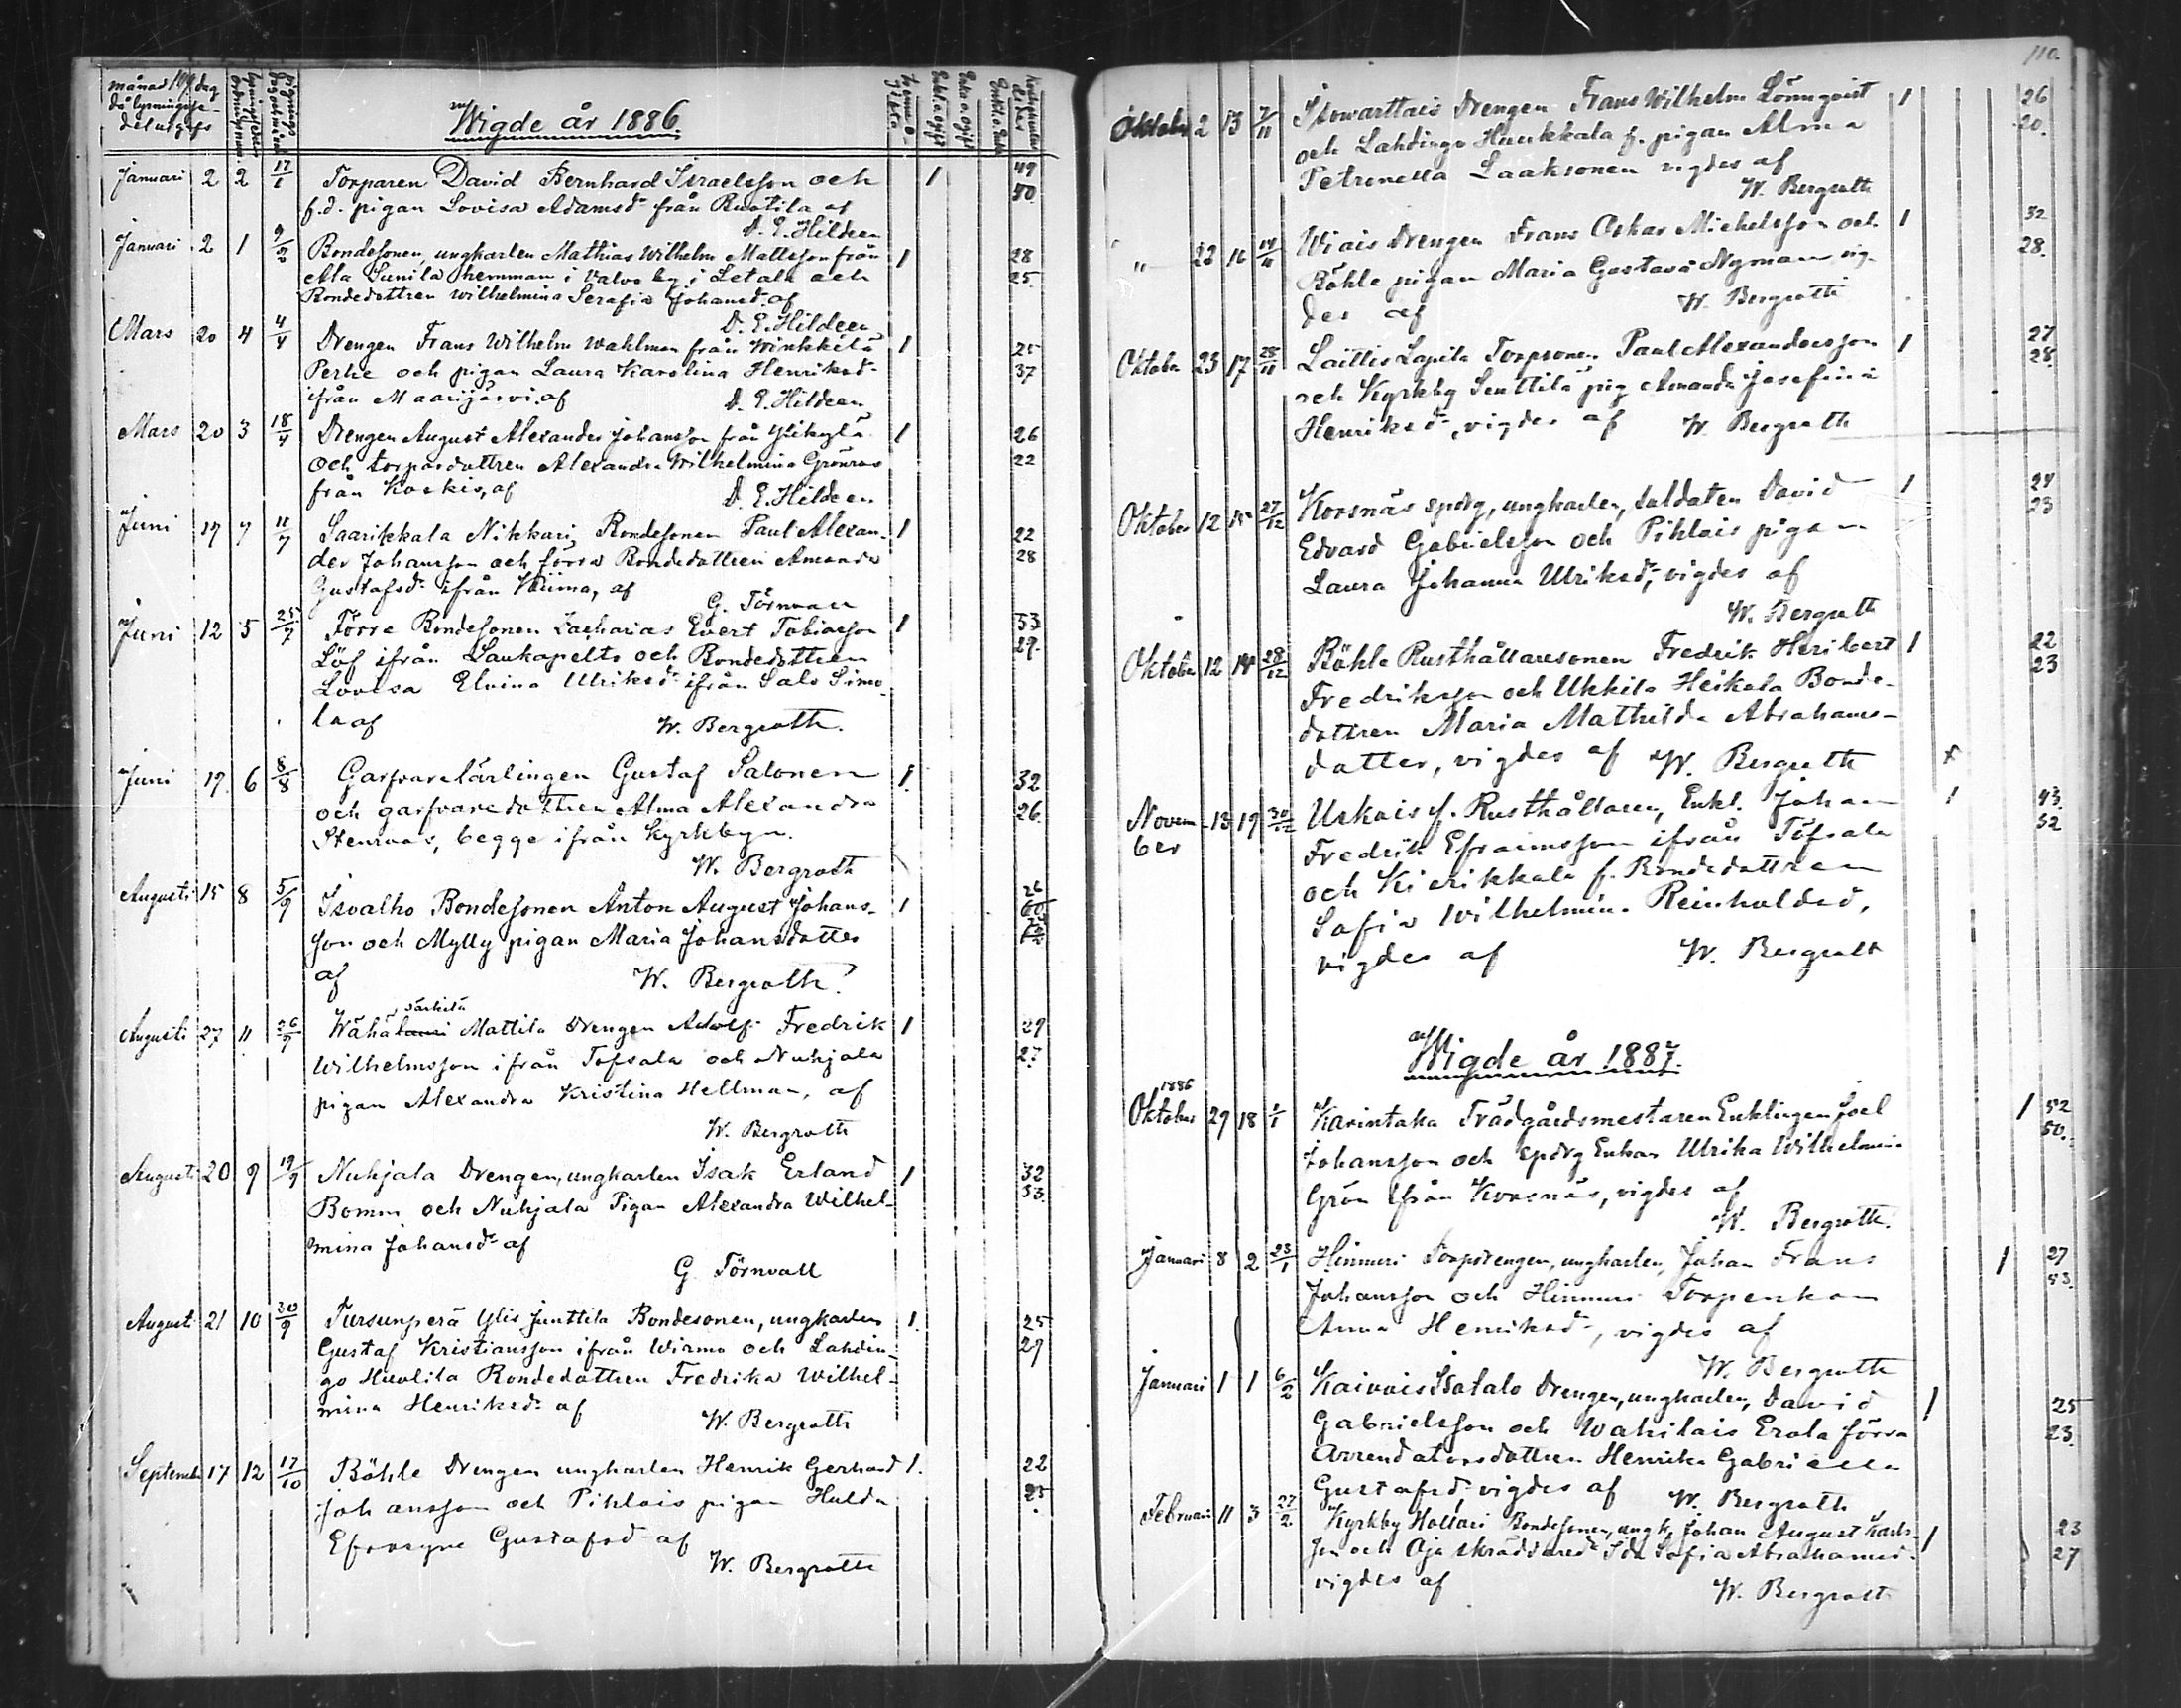 månad 109 dag
då lysningsse-
del utgifs
Wigde år 1886
Januari 2 2 17/1 Torparen David Bernhard Israelsson och 1 49
f.d. pigan Lovisa Adamsd. från Ruotila af 40
D. E. Hildeen
Januari 2 1 9/2 Bondesonen, ungkarlen Mathias Wilhelm Mattsson från 1 28
Ala Sunila hemman i Valvo by i Letala och 25
Bondedottren Wilhelmina Serafia Johansd. af
D. E. Hildeen
Mars 20 4 4/4 Drengen Frans Wilhelm Wahlman från Winkkilä 1 25
Perhe och pigan Laura Karolina Henriksd. 37
ifrån Maarijärvi af D. E. Hildeen
Mars 20 3 18/4 Drengen August Alexander Johansson från Ylikylä 1 26
och torparedottren Alexandra Wilhelmina Grönroos 22
från Koskis, af D. E. Hildeen
Juni 17 7 11/7 Saarikkala Nikkari, Bondesonen Paul Alexan- 1 22
der Johansson och förra Bondedottren Amanda 28
Gustafsd. ifrån Kiima, af
G. Törnvall
Juni 12 5 25/7 Förre Bondesonen Zacharias Evert Tobiasson 1 33
Löf ifrån Laukapelto och Bondedottren 29.
Lovisa Elvina Ulriksd. ifrån Salo Simo-
la af W. Bergroth.
Juni 19. 6 8/8 Garfvarelärlingen Gustaf Salonen 1. 32
och garfvaredottren Alma Alexandra 26.
Stenroos, begge ifrån Kyrkbyn.
W. Bergroth
Augusti 15 8 5/9 Isvalho Bondesonen Anton August Johans- 1 26
son och Mylly pigan Maria Johansdotter
af W. Bergroth.
särkilä
Augusti 27 11 26/9 Wähälauri Mattila Drengen Adolf Fredrik 1 29
Wilhelmsson ifrån Tofsala och Nuhjala 27.
pigan Alexandra Kristina Hellman, af
W. Bergroth
Augusti 20 9 19/9 Nuhjala Drengen, ungkarlen Isak Erland 1 32
Bomm och Nuhjala Pigan Alexandra Wilhel- 33.
mina Johansd. af
G. Törnvall
Augusti 21 10 30/9 Tursunperä Ylis Junttila Bondesonen, ungkarlen 1. 25
Gustaf Kristiansson ifrån Wirmo och Lahdin- 29
go Huolila Bondedottren Fredrika Wilhel-
mina Henriksd. af W. Bergroth
September 17 12 17/10 Böhle Drengen ungkarlen Henrik Gerhard 1. 22
Johansson och Pihlais pigan Hulda 25
Efrosyne Gustafsd. af
W. Bergroth
110.
Oktober 2 13 7/11 Drengen Frans Wilhelm Lönnqvist 1 26
och Lahdingo Huukkala f. pigan Alma 20.
Petronella Laaksonen vigdes af
W. Bergroth
" 22 16 14/11 Wiais Drengen Frans Oskar Michelsson och 1 32
Böhle pigan Maria Gustava Nyman vig- 28.
des af W. Bergroth
Oktober 23 17 25/11 Laittis Lapila Torpsonen Paul Alexandersson 1 27
och Kyrkby Sunttila pig Amanda Josefina 28.
Henriksd., vigdes af W. Bergroth
Oktober 12 15 27/12 Korsnäs spdrg, ungkarlen, soldaten David 1 24
Edvard Gabrielsson och Pihlais pigan 23
Laura Johanna Ulriksd., vigdes af
W. Bergroth
Oktober 12 14 28/12 Böhle Rusthållaresonen Fredrik Heribert 1 22
Fredriksson och Ukkila Heikola Bonde- 23
dottren Maria Mathilda Abrahams-
dotter, vigdes af W. Bergroth x
Novem 13 19 30/12 Urkais f. Rusthållaren, Enkl. Johan 1 43.
ber Fredrik Efraimsson ifrån Töfsala 52
och Kierikkala f. Bondedottren
Sofia Wilhelmina Reinholdsd.,
vigdes af W. Bergroth
Wigde år 1887.
1886
Oktober 29 18 1/1 Karintaka Trädgårdsmestaren Enklingen Joel 1 52
Johansson och spdrg Enkan Ulrika Wilhelmina 50.
Grön ifrån Korsnäs, vigdes af
W. Bergroth.
Januari 8 2 23/1 Hinnuri Torpdrengen, ungkarlen, Johan Frans 1 27
Johansson och Hinnuri Torpenkan 53.
Anna Henriksd., vigdes af
W. Bergroth
Januari 1 1 6/2 Kaivois Isotalo Drengen, ungkarlen, David 1 25
Gabrielsson och Wahilais Erola förra 23.
Arrendatorsdottren Henrika Gabriella
Gustafsd. vigdes af W. Bergroth
Februari 11 3 27/2 Kyrkby Hollari Bondesonen, ungk. Johan August Karls- 1 23
son och Oja skräddared. Ida Sofia Abrahamsd. 27
vigdes af W. Bergroth